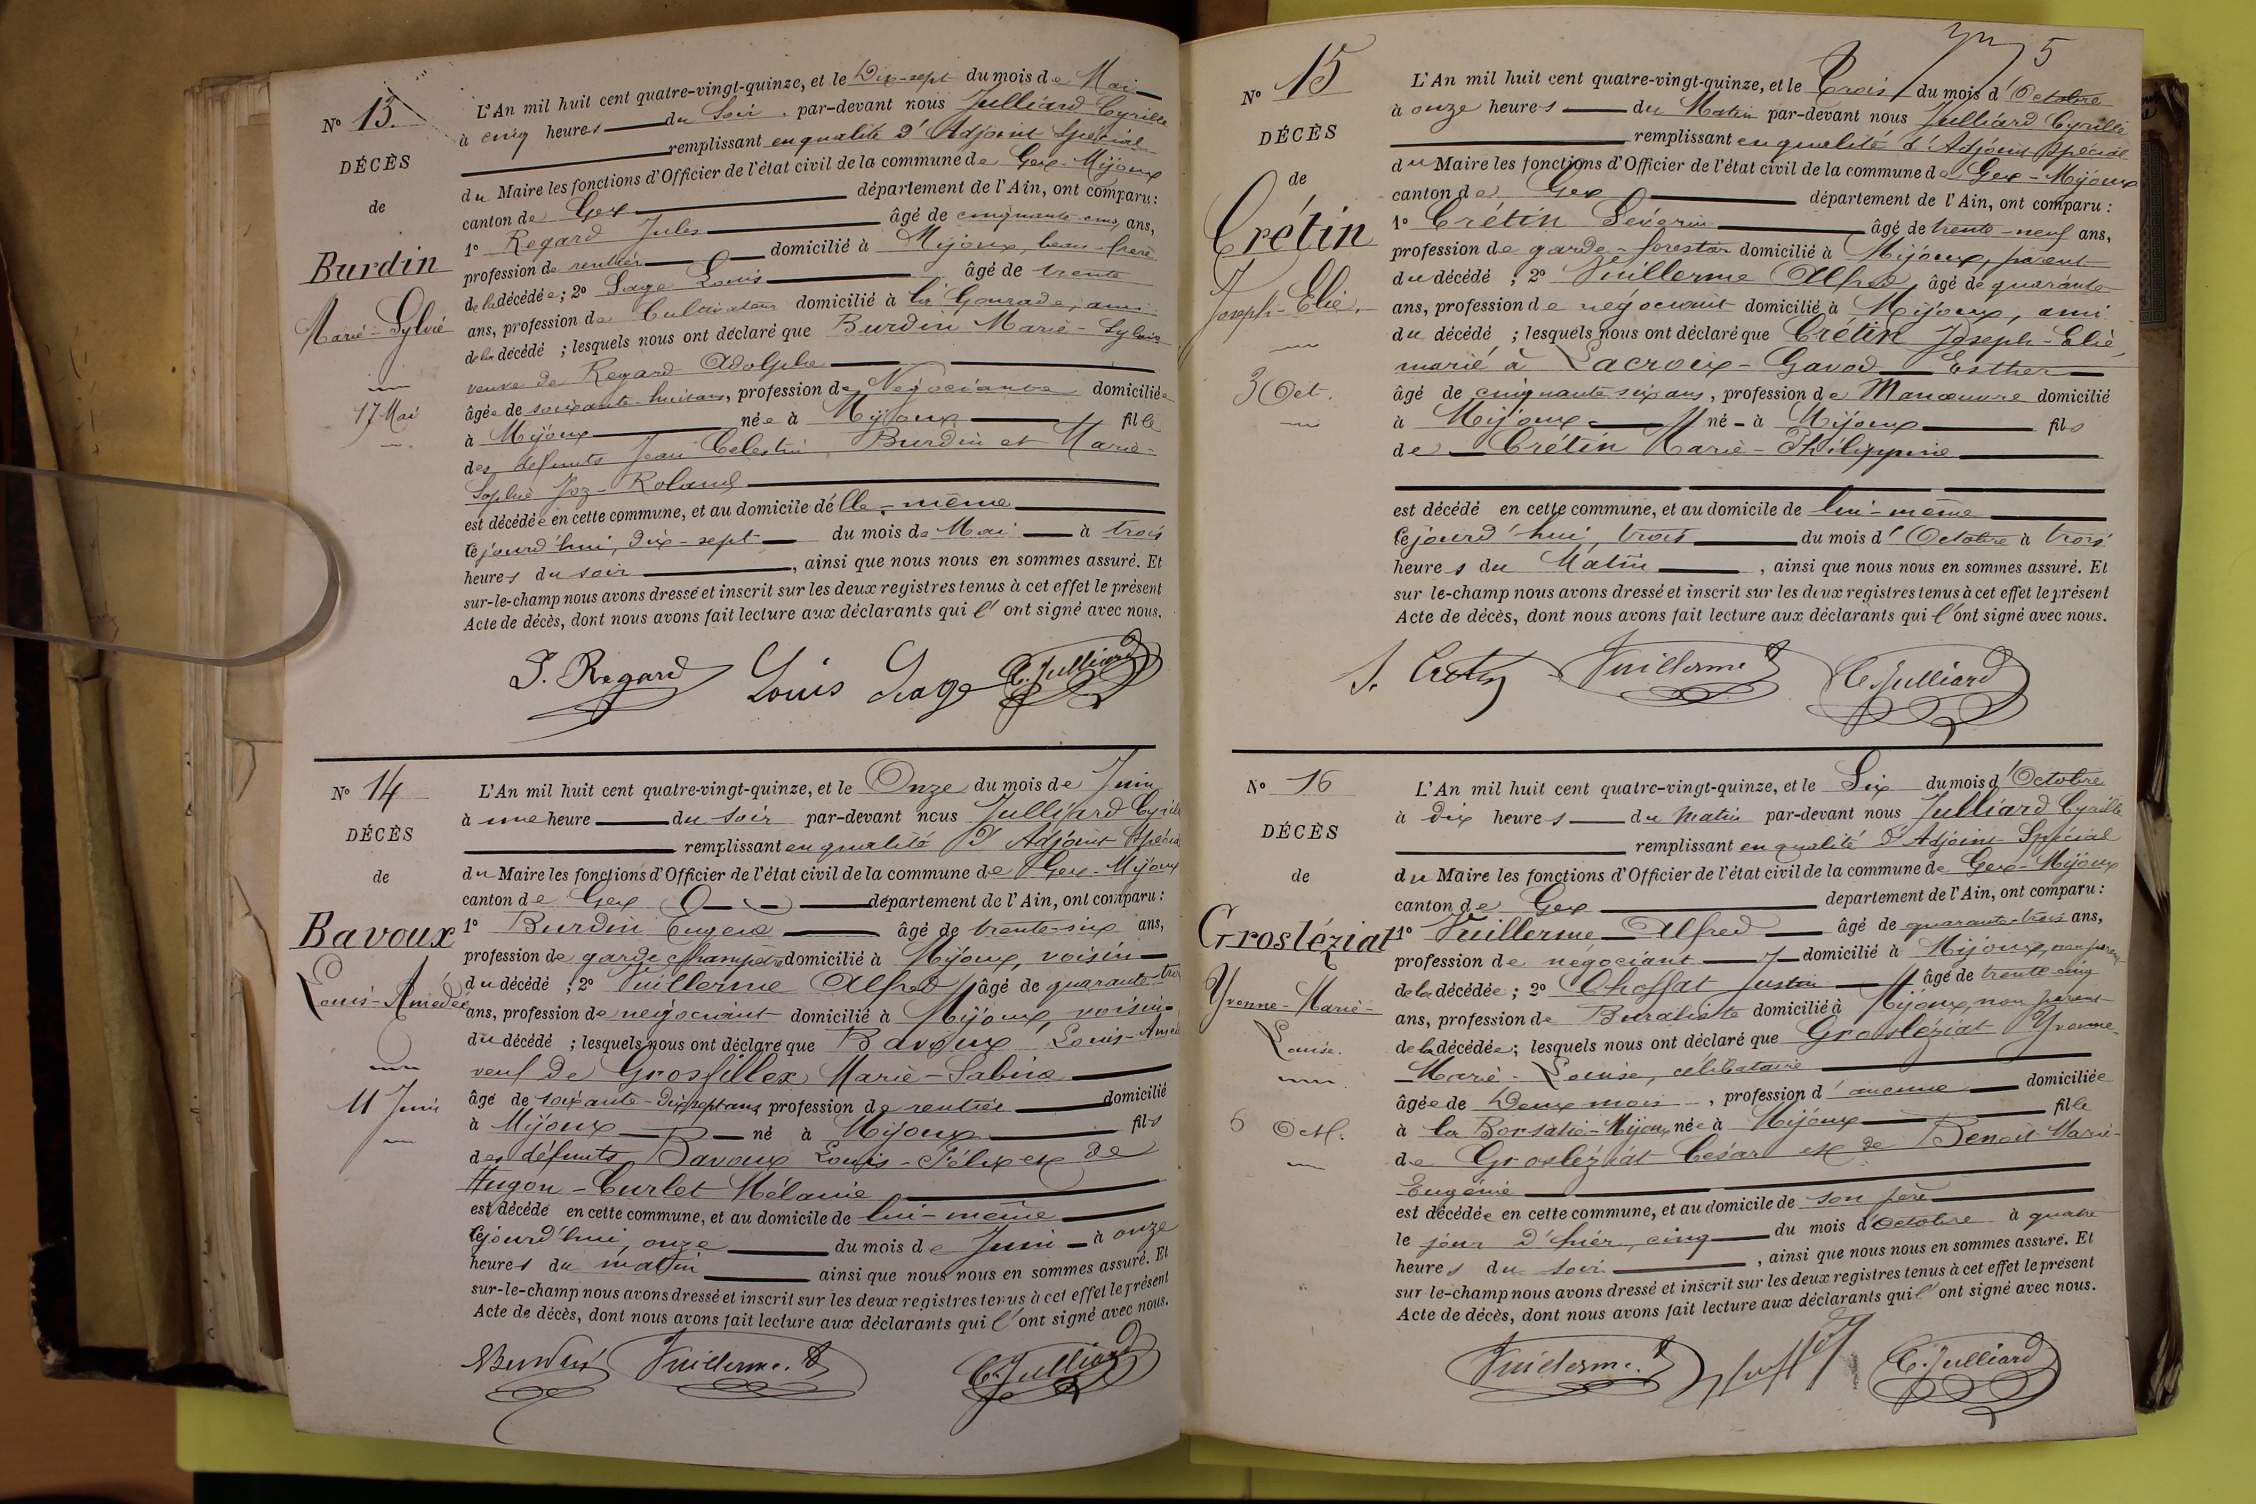 Nº 13.
DÉCÈS
de
Burdin
Marie-Sylvie
17 Mai
L'An mil huit cent quatre-vingt-quinze, et le Dix-sept du mois de Mai
à cinq heures du Soir, par-devant nous Julliard Cyrille
remplissant en qualité d'Adjoint Spécial
du Maire les fonctions d'Officier de l'état civil de la commune de Gex-Mijoux
canton de Gex département de l'Ain, ont comparu :
1º Regard Jules âgé de cinquante-cinq ans,
profession de rentier domicilié à Mijoux, beau-frère
de la décédée ; 2º Sage Louis âgé de trente
ans, profession de Cultivateur domicilié à la Gourade, ami
de la décédé ; lesquels nous ont déclaré que Burdin Marie-Sylvie
veuve de Regard Adolphe
âgée de soixante-huit ans, profession de Négociante domiciliée
à Mijoux née à Mijoux fille
des défunts Jean Célestin Burdin et Marie-
Sophie Joz-Roland
est décédée en cette commune, et au domicile d'élle-même
cejourd'hui, dix-sept du mois de Mai à trois
heures du soir, ainsi que nous nous en sommes assuré. Et
sur-le-champ nous avons dressé et inscrit sur les deux registres tenus à cet effet le présent
Acte de décès, dont nous avons fait lecture aux déclarants qui l'ont signé avec nous.
J. Regard Louis Sage C. Julliard
Nº 14
DÉCÈS
de
Bavoux
Louis-Amédée
11 Juin
L'An mil huit cent quatre-vingt-quinze, et le Onze du mois de Juin
à une heure du soir par-devant nous Julliard Cyrille
remplissant en qualité d'Adjoint Spécial
du Maire les fonctions d'Officier de l'état civil de la commune de Gex-Mijoux
canton de Gex département de l'Ain, ont comparu :
1º Burdin Eugène âgé de trente-six ans,
profession de garde champêtre domicilié à Mijoux, voisin
du décédé ; 2º Vuillerme Alfred âgé de quarante-trois
ans, profession de négociant domicilié à Mijoux, voisin
du décédé ; lesquels nous ont déclaré que Bavoux Louis-Amédée
veuf de Grosfillex Marie-Sabine
âgé de soixante-dix-sept ans profession de rentier domicilié
à Mijoux né à Mijoux fils
des défunts Bavoux Louis-Félix et de
Hugon-Curlet Mélanie
est décédé en cette commune, et au domicile de lui-même
cejourd'hui, onze du mois de Juin à onze
heures du matin ainsi que nous nous en sommes assuré. Et
sur-le-champ nous avons dressé et inscrit sur les deux registres tenus à cet effet le présent
Acte de décès, dont nous avons fait lecture aux déclarants qui l'ont signé avec nous.
Burdin Vuillerme. A C. Julliard
5
Nº 15
DÉCÈS
de
Crétin
Joseph-Elie
3 Oct.
L'An mil huit cent quatre-vingt-quinze, et le Trois du mois d'Octobre
à onze heures du Matin par-devant nous Julliard Cyrille
remplissant en qualité d'Adjoint Spécial
du Maire les fonctions d'Officier de l'état civil de la commune de Gex-Mijoux
canton de Gex département de l'Ain, ont comparu :
1º Crétin Séverin âgé de trente-neuf ans,
profession de garde-forestier domicilié à Mijoux, parent
du décédé ; 2º Vuillerme Alfred, âgé de quarante
ans, profession de négociant domicilié à Mijoux, ami
du décédé ; lesquels nous ont déclaré que Crétin Joseph-Elie,
marié à Lacroix-Gavod Esther
âgé de cinquante six ans, profession de Manœuvre domicilié
à Mijoux né à Mijoux fils
de Crétin Marie-Philippine
est décédé en cette commune, et au domicile de lui-même
cejourd'hui, trois du mois d'Octobre à trois
heures du Matin, ainsi que nous nous en sommes assuré. Et
sur le-champ nous avons dressé et inscrit sur les deux registres tenus à cet effet le présent
Acte de décès, dont nous avons fait lecture aux déclarants qui l'ont signé avec nous.
S. Crétin Vuillerme A C. Julliard
Nº 16
DÉCÈS
de
Grosléziat
Yvonne-Marie-
Louise.
6 Oct.
L'An mil huit cent quatre-vingt-quinze, et le Six du mois d'Octobre
à dix heures du Matin par-devant nous Julliard Cyrille
remplissant en qualité d'Adjoint Spécial
du Maire les fonctions d'Officier de l'état civil de la commune de Gex-Mijoux
canton de Gex departement de l'Ain, ont comparu :
1º Vuillerme Alfred âgé de quarante-trois ans,
profession de négociant domicilié à Mijoux, non parent
de la décédée ; 2º Choffat Justin âgé de trente-cinq
ans, profession de Buraliste domicilié à Mijoux, non parent
de la décédée ; lesquels nous ont déclaré que Grosléziat Yvonne-
Marie-Louise, célibataire
âgée de Deux mois, profession d'aucune domiciliée
à la Borsatie-Mijoux née à Mijoux fille
de Groslézíat César et de Benoit-Marie-
Eugénie
est décédée en cette commune, et au domicile de son père
le jour d'hier, cinq du mois d'Octobre à quatre
heures du soir, ainsi que nous nous en sommes assuré. Et
sur le-champ nous avons dressé et inscrit sur les deux registres tenus à cet effet le présent
Acte de décès, dont nous avons fait lecture aux déclarants qui l'ont signé avec nous.
Vuillerme. A C. Julliard